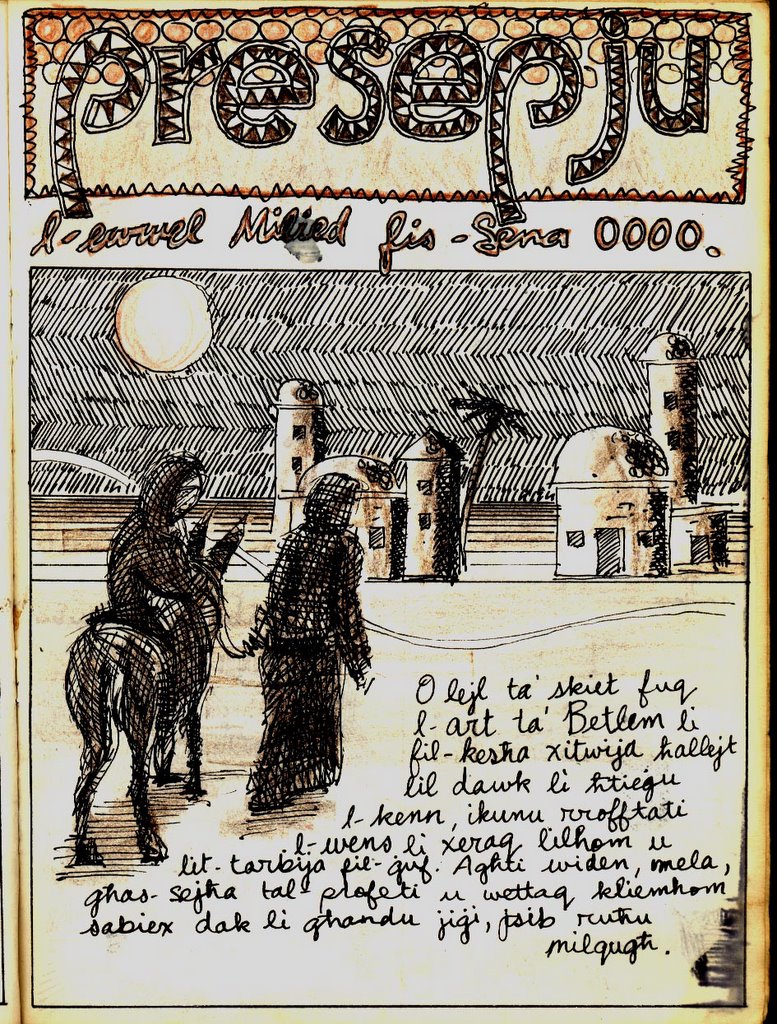 presepju
l-ewwel Milied fis-Sena 0000.
O lejl ta' skiet fuq
l-art ta' Betlem li
fil-kesħa xitwija ħallejt
lil dawk li ħtieġu
l-kenn, ikunu rrofftati
l-wens li xeraq lilhom u
lit-tarbija fil-ġuf. Agħti widen, mela,
għas-sejħa tal-profeti u wettaq kliemhom
sabiex dak li għandu jiġi, jsib ruħu
milqugħ.